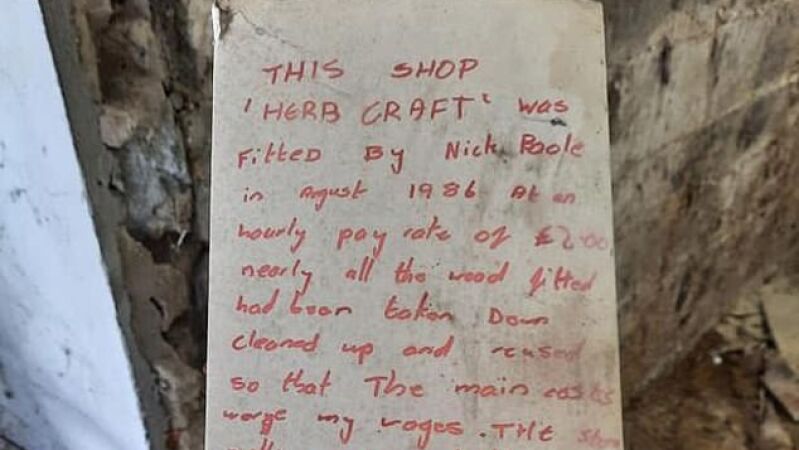 THIS SHOP
'HERB CRAFT' was
Fitted By Nick Poole
in August 1986 At an
hourly pay rate of £2.00
nearly all the wood fitted
had been taken Down
cleaned up and reused
so that The main costs
warge my wages. THE